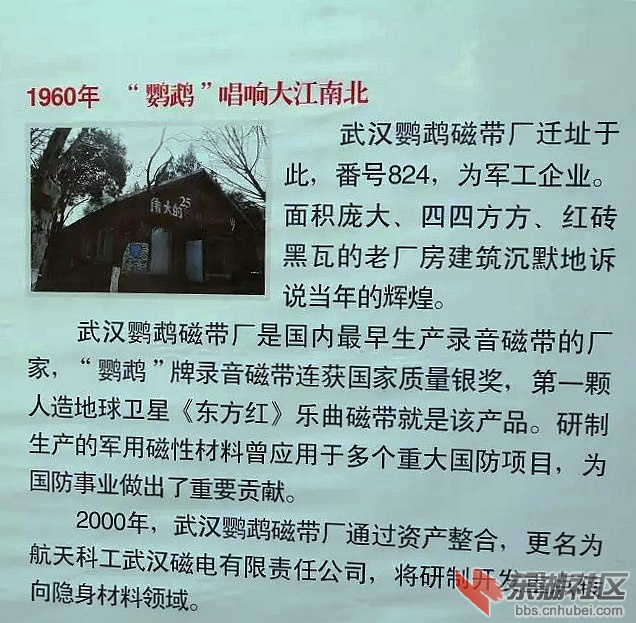 1960年 “鹦鹉”唱响大江南北
伟大的
25
武汉鹦鹉磁带厂迁址于
此，番号824，为军工企业。
面积庞大、四四方方、红砖
黑瓦的老厂房建筑沉默地诉
说当年的辉煌。
武汉鹦鹉磁带厂是国内最早生产录音磁带的厂
家，“鹦鹉”牌录音磁带连获国家质量银奖，第一颗
人造地球卫星《东方红》乐曲磁带就是该产品。研制
生产的军用磁性材料曾应用于多个重大国防项目，为
国防事业做出了重要贡献。
2000年，武汉鹦鹉磁带厂通过资产整合，更名为
航天科工武汉磁电有限责任公司，将研制开发重点
向隐身材料领域。
东湖社区
bbs.cnhubei.com